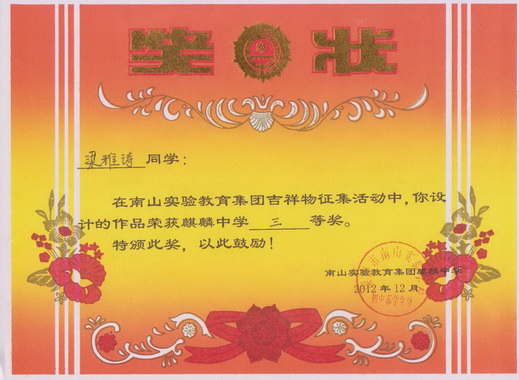 奖状
梁雅诗 同学：
在南山实验教育集团吉祥物征集活动中，你设
计的作品荣获麒麟中学 三 等奖。
特颁此奖，以此鼓励！
南山实验教育集团麒麟中学
2012年12月